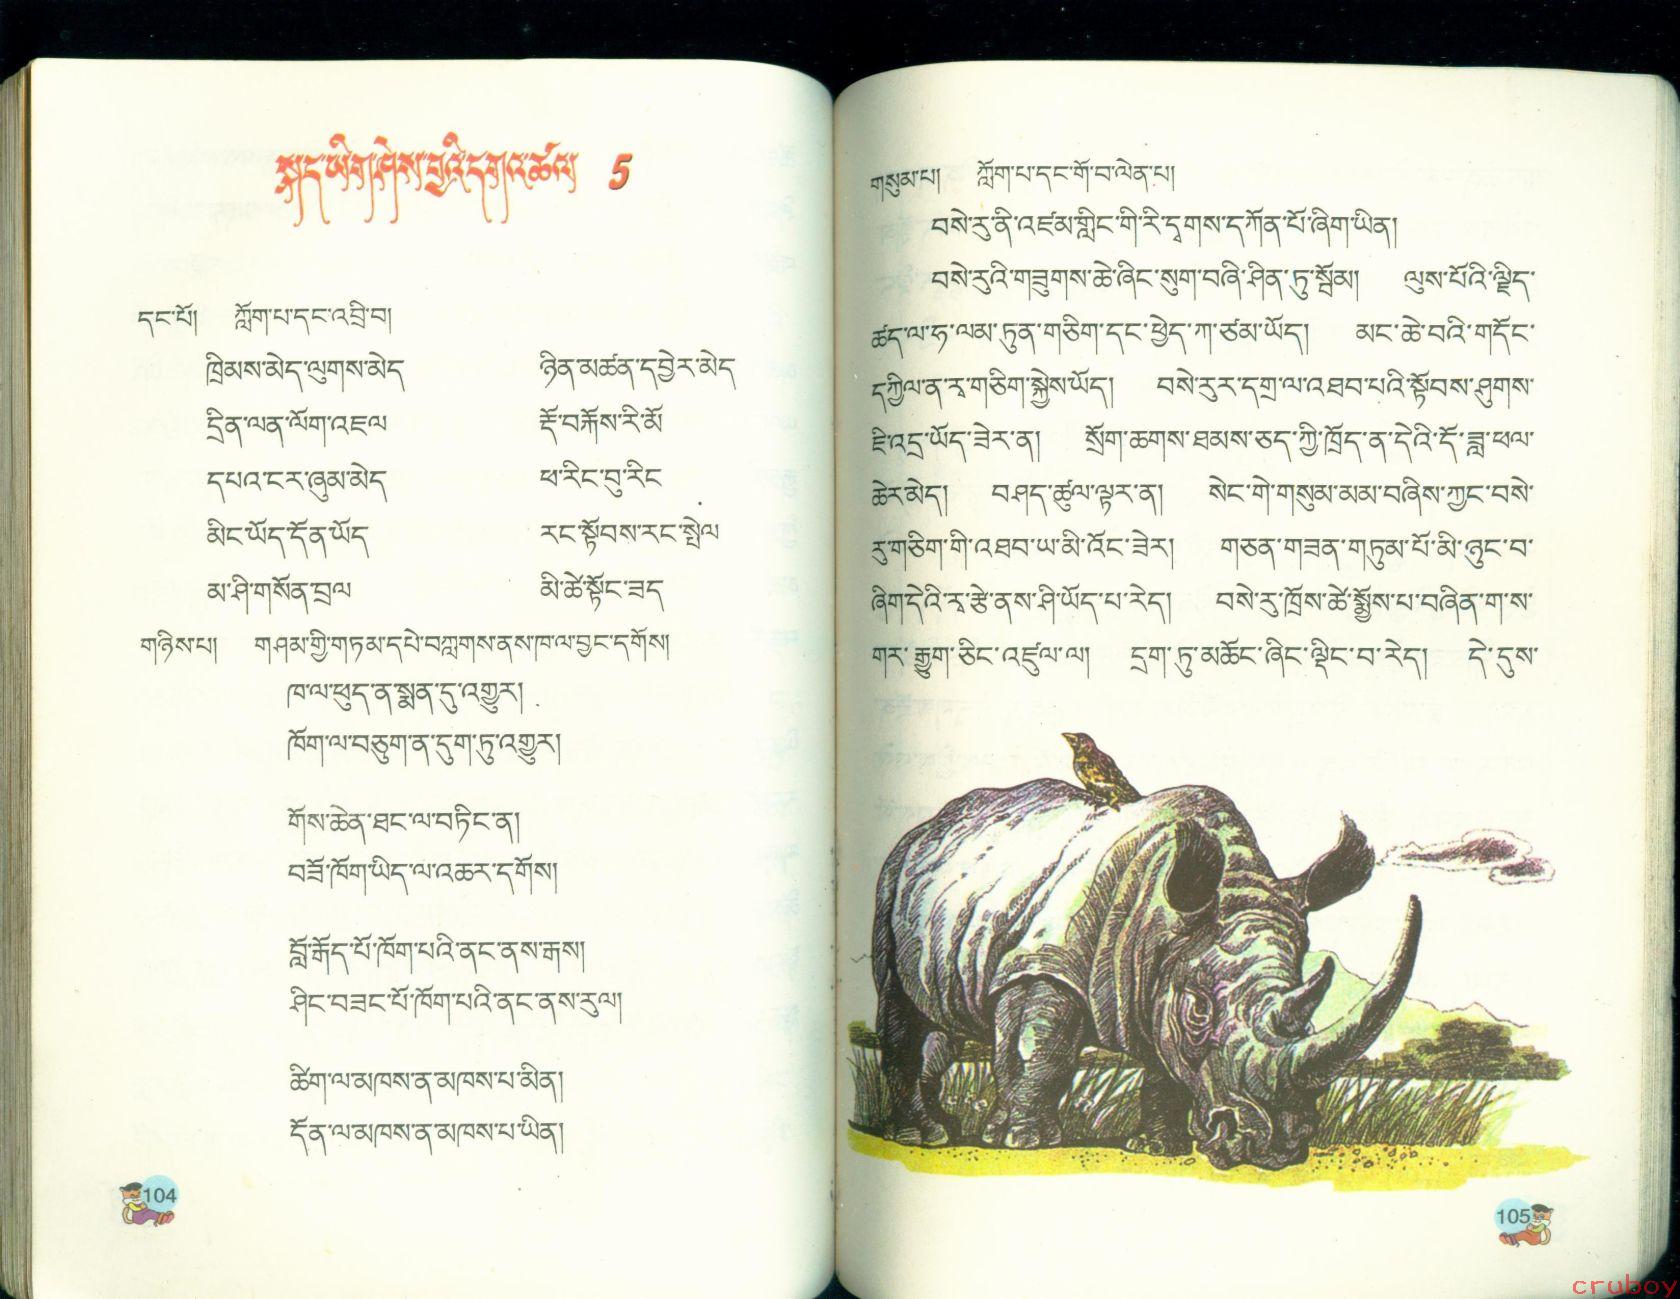 སྐད་ཡིག་ཤེས་བྱའི་དགའ་ཚལ། 5
དང་པོ། ཀློག་པ་དང་འབྲི་བ།
ཁྲིམས་མེད་ལུགས་མེད ཉིན་མཚན་དབྱེར་མེད
དྲིན་ལན་ལོག་འཇལ རྡོ་བརྐོས་རི་མོ
དཔའ་ངར་ཞུམ་མེད ཕ་རིང་བུ་རིང
མིང་ཡོད་དོན་ཡོད རང་སྟོབས་རང་སྤེལ
མ་ཤི་གསོན་བྲལ མི་ཚེ་སྟོང་ཟད
གཉིས་པ། གཤམ་གྱི་གཏམ་དཔེ་བཀླགས་ནས་ཁ་ལ་བྱང་དགོས།
ཁ་ལ་ཕུད་ན་སྨན་དུ་འགྱུར།
ཁོག་ལ་བཅུག་ན་དུག་ཏུ་འགྱུར།
གོས་ཆེན་ཐང་ལ་བཏིང་ན།
བཟོ་ཁོག་ཡིད་ལ་འཆར་དགོས།
བློ་རྒོད་པོ་ཁོག་པའི་ནང་ནས་རྒས།
ཤིང་བཟང་པོ་ཁོག་པའི་ནང་ནས་རུལ།
ཚིག་ལ་མཁས་ན་མཁས་པ་མིན།
དོན་ལ་མཁས་ན་མཁས་པ་ཡིན།
104
གསུམ་པ། ཀློག་པ་དང་གོ་བ་ལེན་པ།
བསེ་རུ་ནི་འཛམ་གླིང་གི་རི་དྭགས་དཀོན་པོ་ཞིག་ཡིན།
བསེ་རུའི་གཟུགས་ཆེ་ཞིང་སུག་བཞི་ཤིན་ཏུ་སྦོམ། ལུས་པོའི་ལྗིད་
ཚད་ལ་ཧ་ལམ་ཏུན་གཅིག་དང་ཕྱེད་ཀ་ཙམ་ཡོད། མང་ཆེ་བའི་གདོང་
དཀྱིལ་ན་རྭ་གཅིག་སྐྱེས་ཡོད། བསེ་རུར་དགྲ་ལ་འཐབ་པའི་སྟོབས་ཤུགས་
ཇི་འདྲ་ཡོད་ཟེར་ན། སྲོག་ཆགས་ཐམས་ཅད་ཀྱི་ཁྲོད་ན་དེའི་དོ་ཟླ་ཕལ་
ཆེར་མེད། བཤད་ཚུལ་ལྟར་ན། སེང་གེ་གསུམ་མམ་བཞིས་ཀྱང་བསེ་
རུ་གཅིག་གི་འཐབ་ཡ་མི་འོང་ཟེར། གཅན་གཟན་གཏུམ་པོ་མི་ཉུང་བ་
ཞིག་དེའི་རྭ་རྩེ་ནས་ཤི་ཡོད་པ་རེད། བསེ་རུ་ཁྲོས་ཚེ་སྨྱོས་པ་བཞིན་ག་ས་
གར་རྒྱུག་ཅིང་འཛུལ་ལ། དྲག་ཏུ་མཆོང་ཞིང་ལྡིང་བ་རེད། དེ་དུས་
105
cruboy